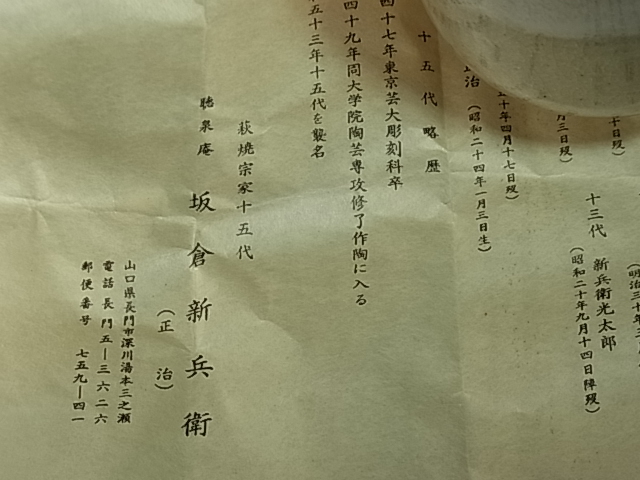 十日歿)
(明治三十
十三代 新兵衛光太郎
(昭和二十年九月十四日陣歿)
月三日歿)
五十年四月十七日歿)
正治 (昭和二十四年一月三日生)
十五代略歴
四十七年東京芸大彫刻科卒
四十九年同大学院陶芸専攻修了作陶に入る
五十三年十五代を襲名
萩焼宗家十五代
聴泉庵 坂倉新兵衛
(正治)
山口県長門市深川湯本三之瀬
電話長門五―三六二六
郵便番号 七五九―四一